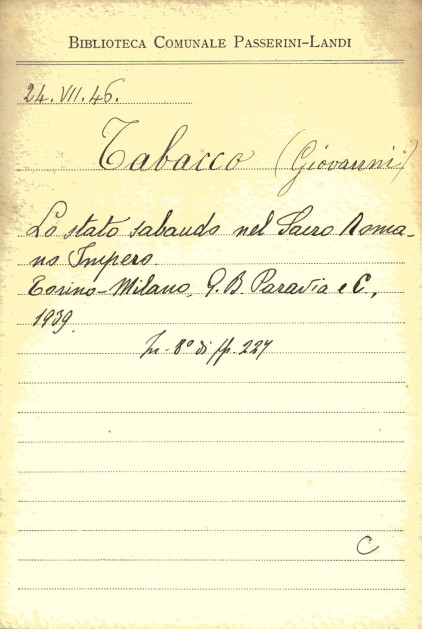 BIBLIOTECA COMUNALE PASSERINI-LANDI
24. VII. 46.
Tabacco (Giovanni)
Lo stato sabaudo nel Sacro Roma-
no Impero.
Torino-Milano, G. B. Paravia e C.,
1939.
In-8° di pp. 227
C